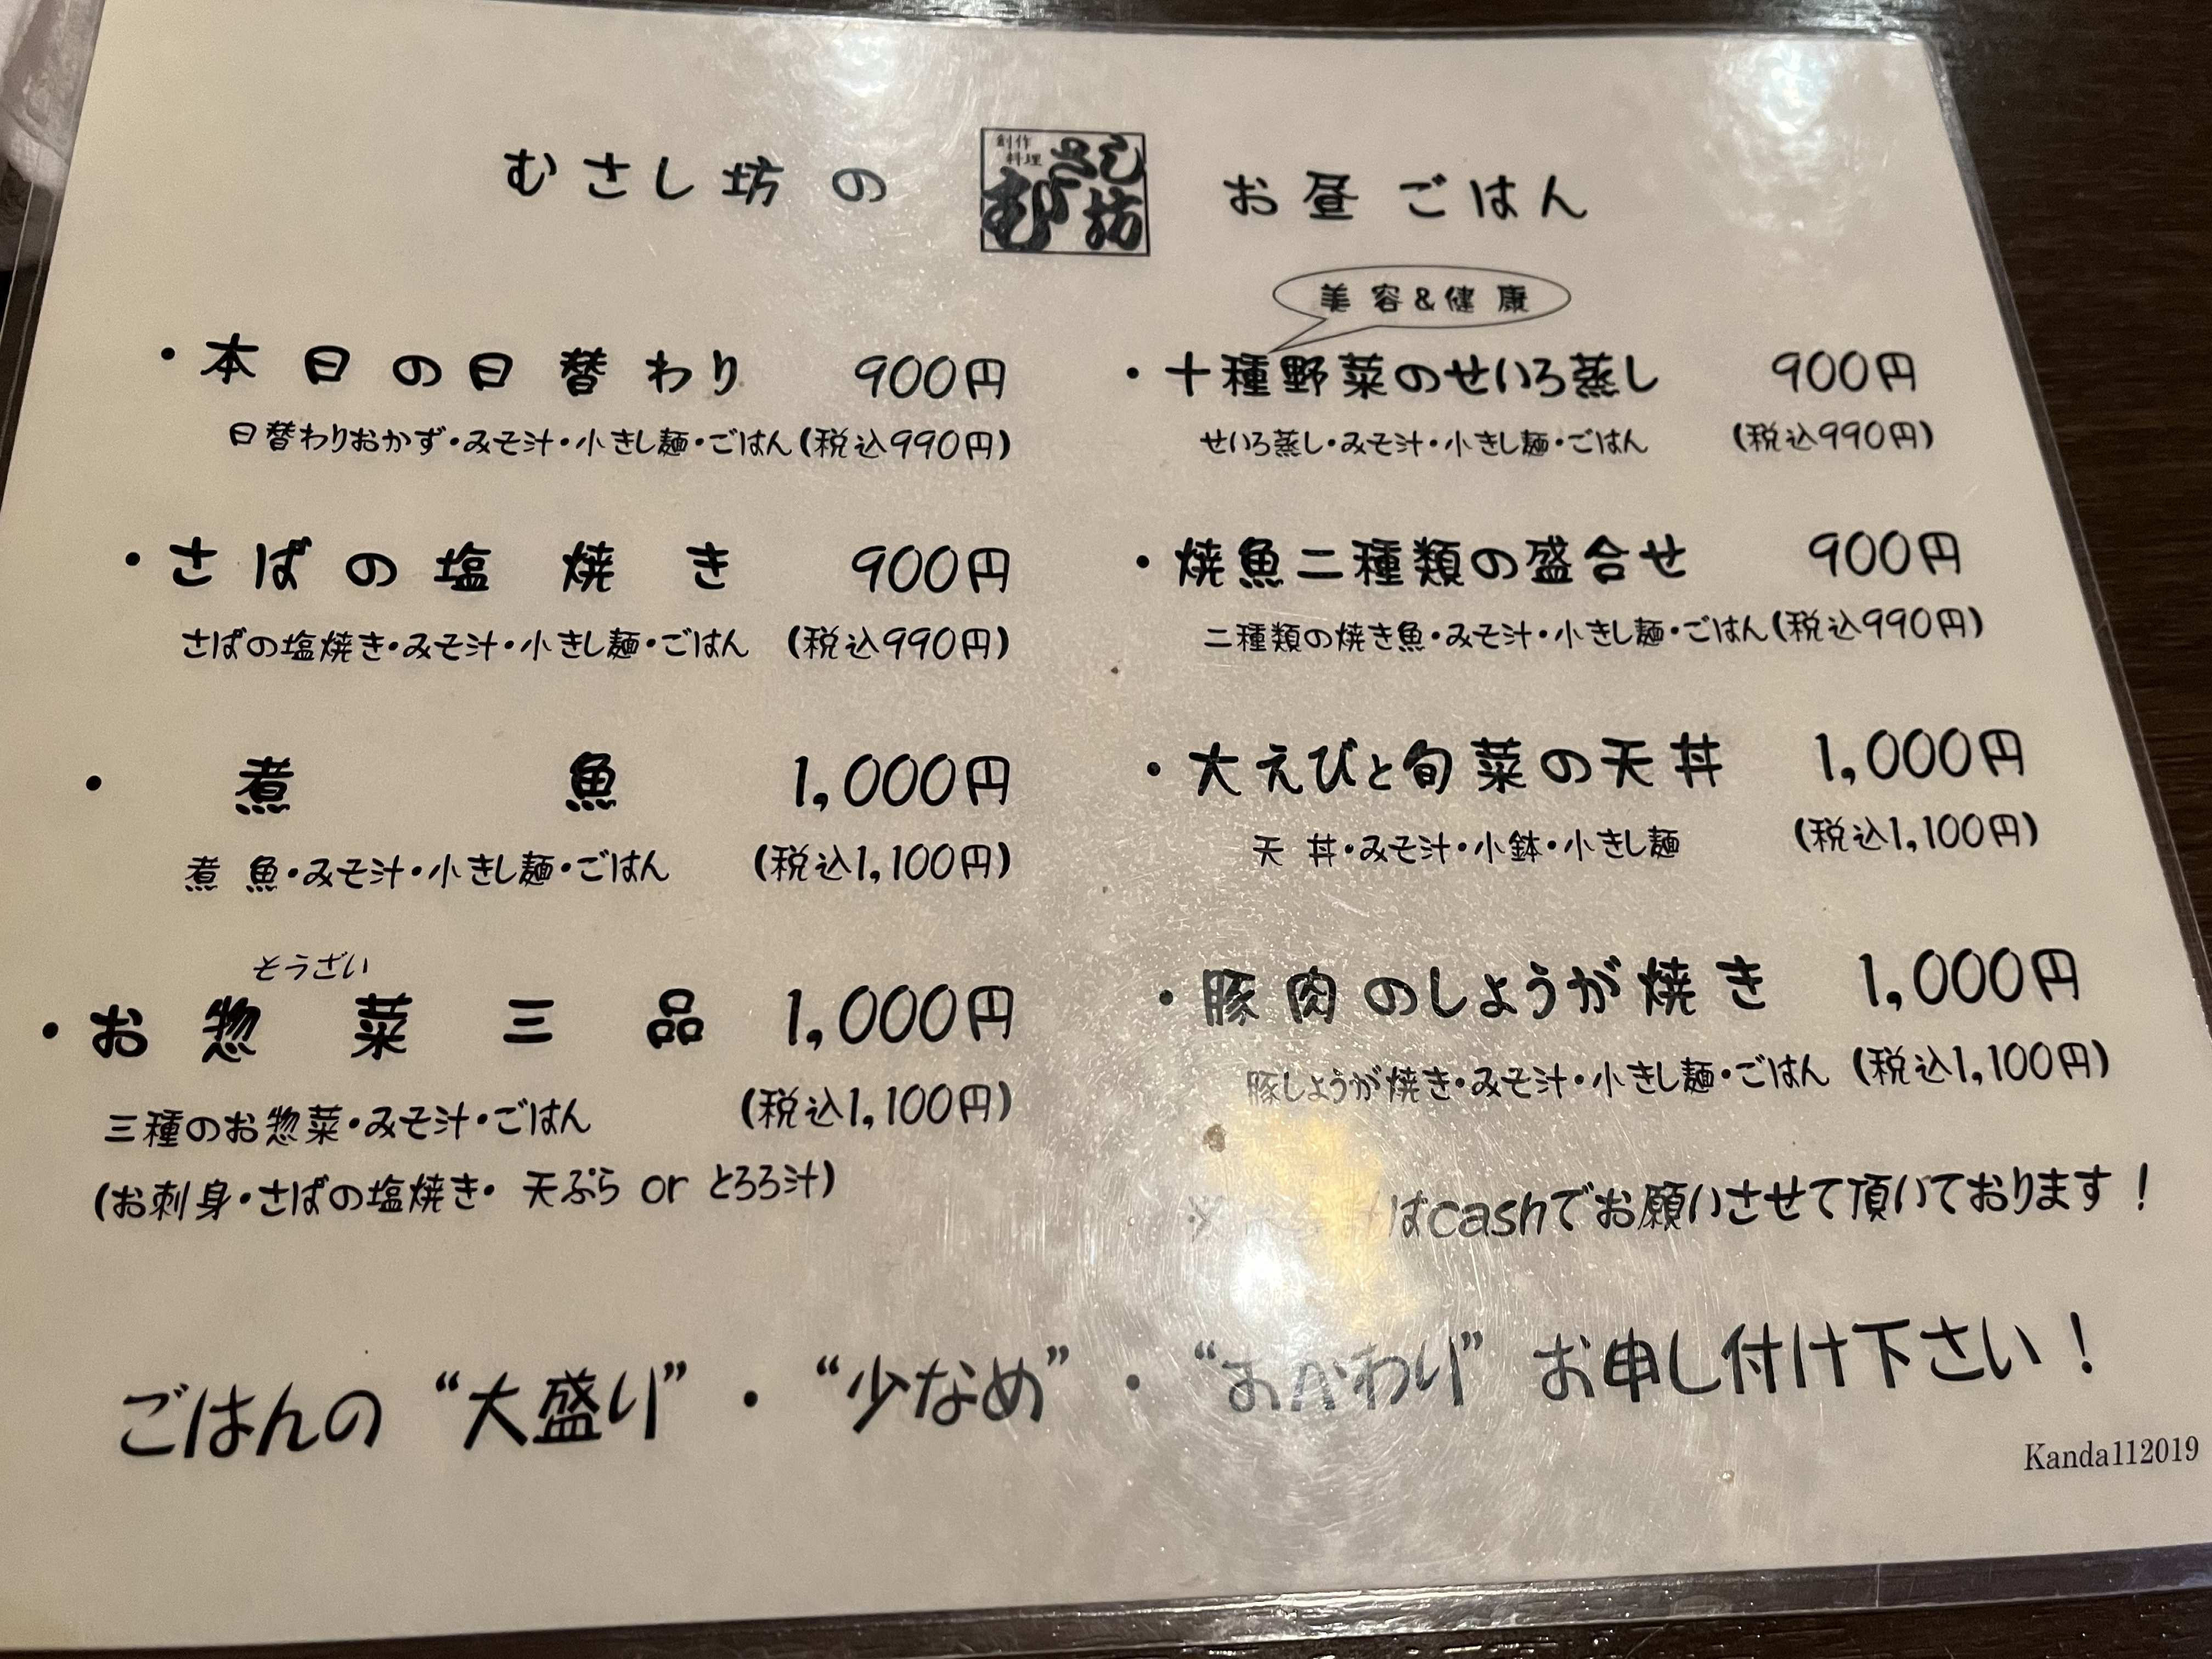 むさし坊の 創作料理 むさし坊 お昼ごはん
・本日の日替わり 900円
日替わりおかず・みそ汁・小きし麺・ごはん(税込990円)
・さばの塩焼き 900円
さばの塩焼き・みそ汁・小きし麺・ごはん (税込990円)
・煮魚 1,000円
煮魚・みそ汁・小きし麺・ごはん (税込1,100円)
そうざい
・お惣菜三品 1,000円
三種のお惣菜・みそ汁・ごはん (税込1,100円)
(お刺身・さばの塩焼き・天ぷら or とろろ汁)
美容&健康
・十種野菜のせいろ蒸し 900円
せいろ蒸し・みそ汁・小きし麺・ごはん (税込990円)
・焼魚二種類の盛合せ 900円
二種類の焼き魚・みそ汁・小きし麺・ごはん(税込990円)
・大えびと旬菜の天丼 1,000円
天丼・みそ汁・小鉢・小きし麺 (税込1,100円)
・豚肉のしょうが焼き 1,000円
豚しょうが焼き・みそ汁・小きし麺・ごはん (税込1,100円)
※ はcashでお願いさせて頂いております！
ごはんの“大盛り”・“少なめ”・“おかわり”お申し付け下さい！
Kanda112019